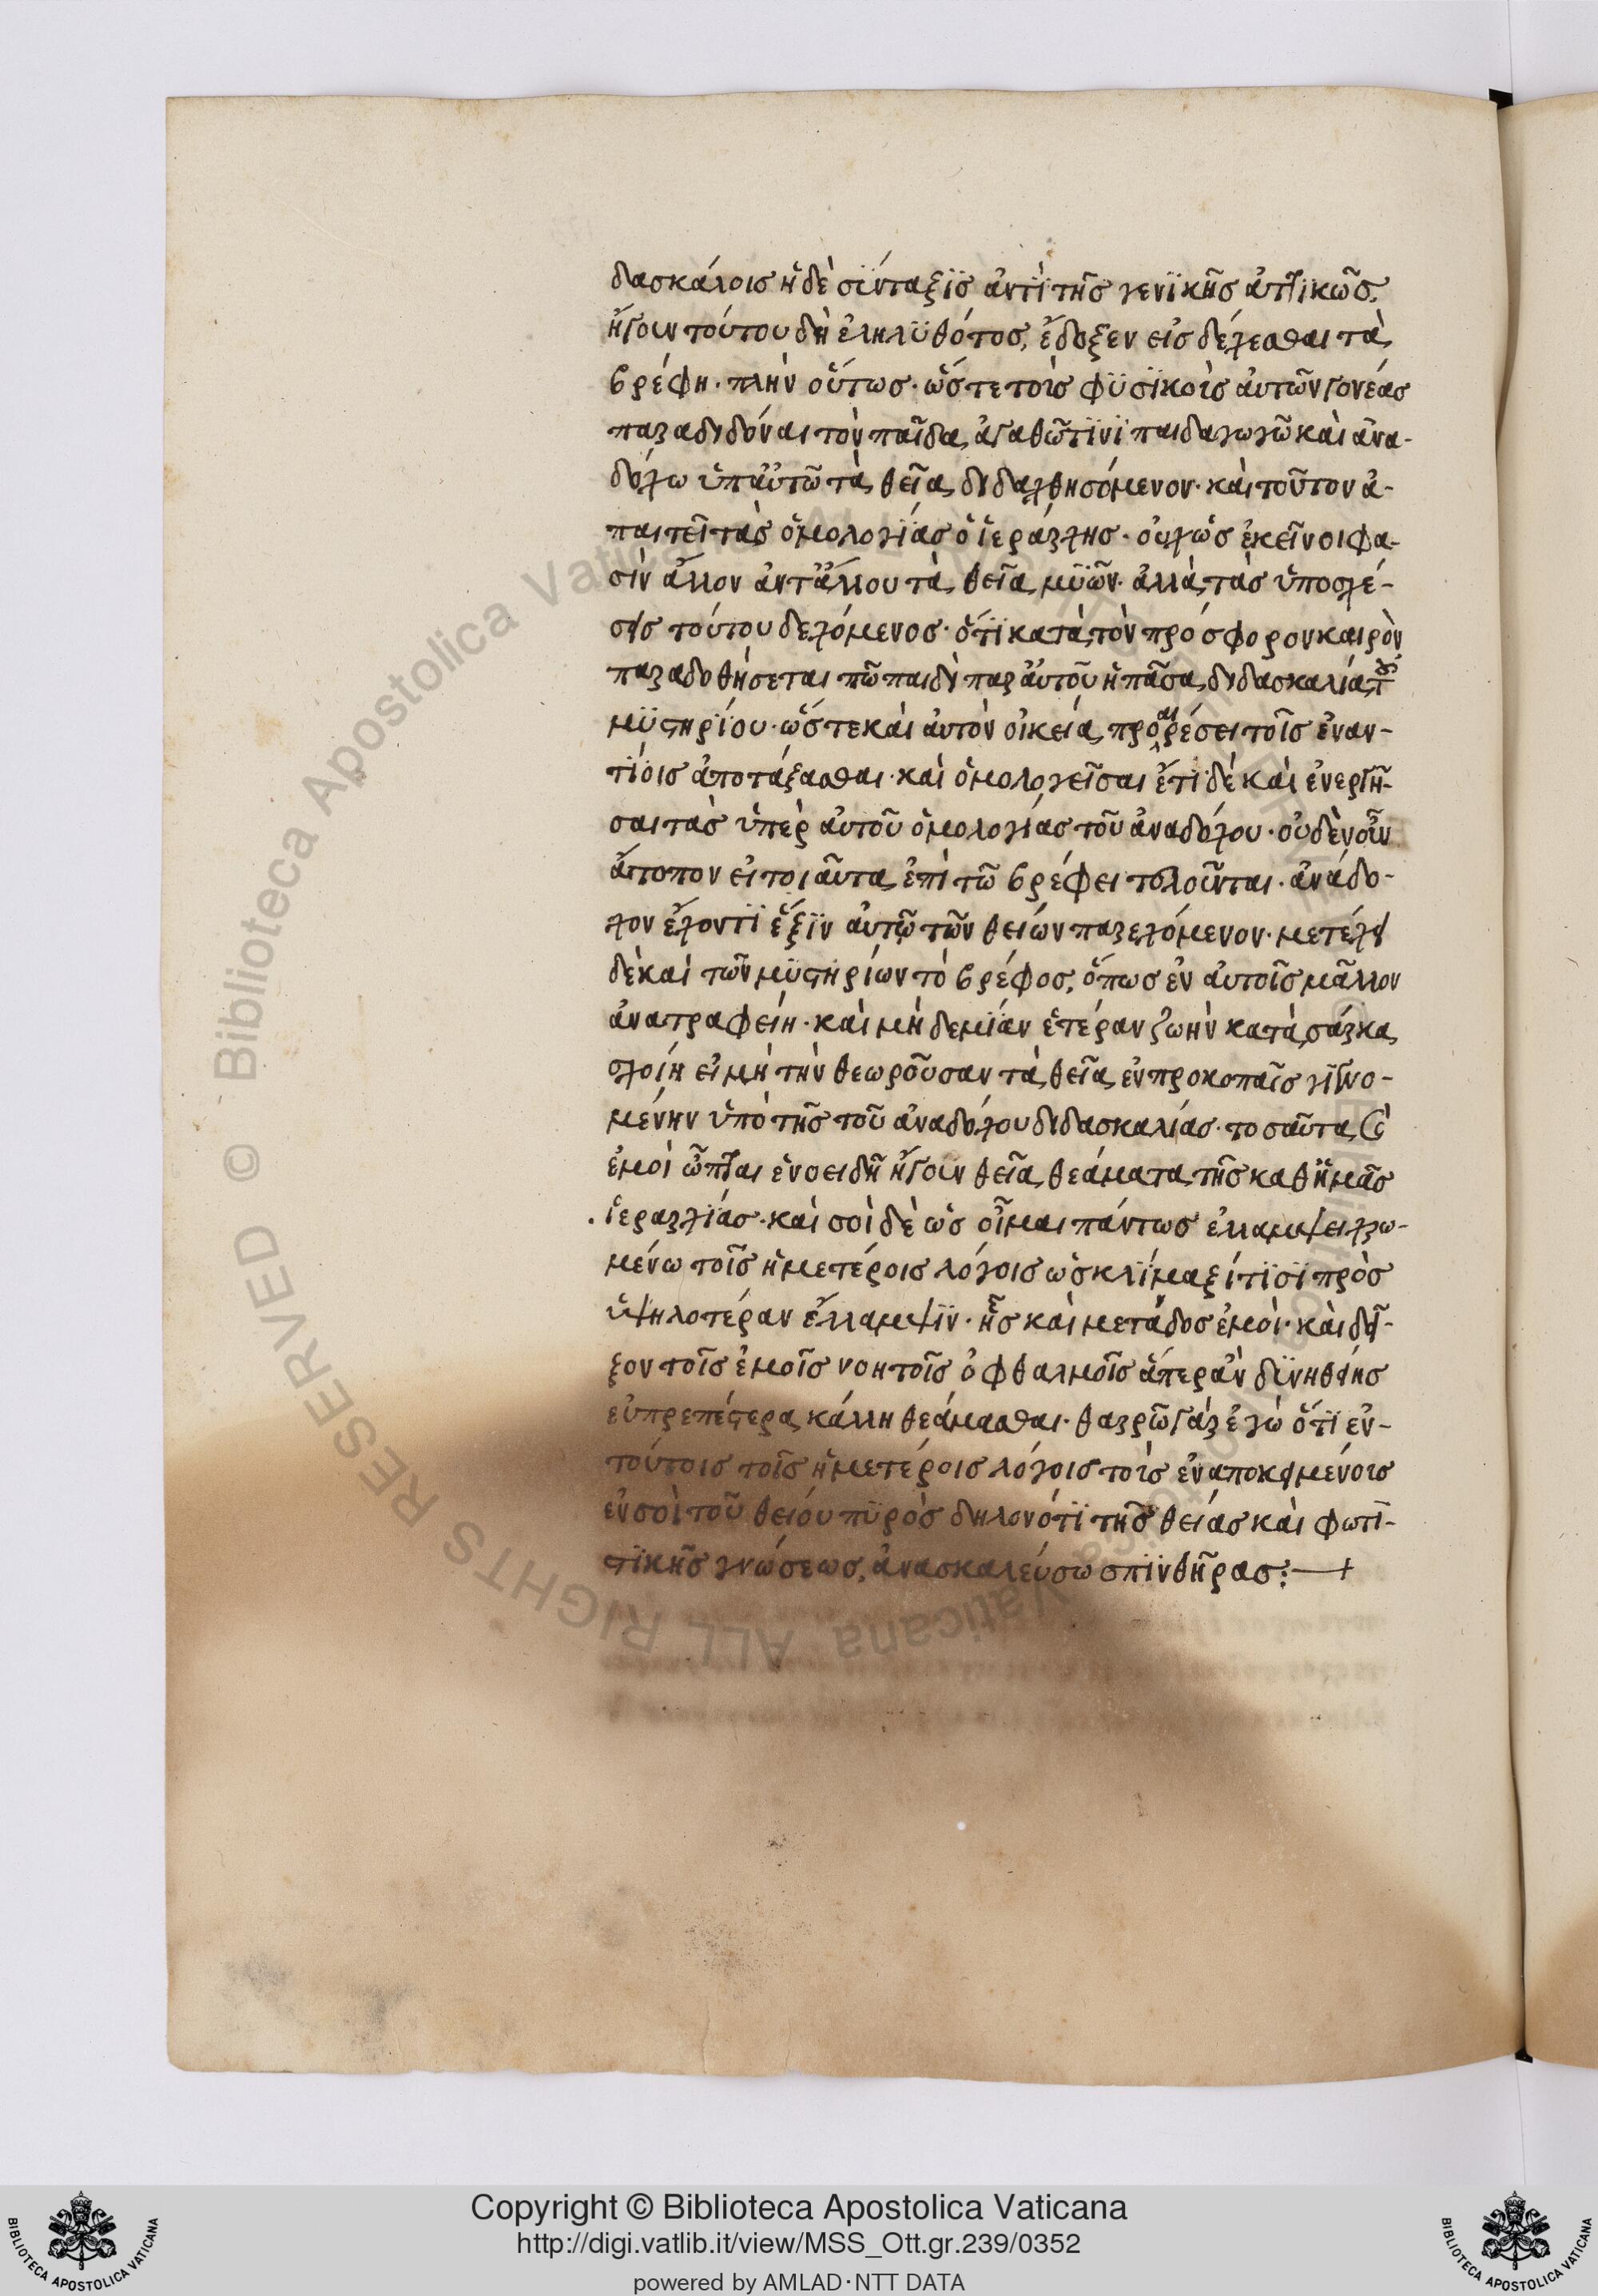 δασκάλοις ἡ δὲ σύνταξϊς ἀντὶ τῆς γενϊκῆς ἀττϊκῶς,
ἤγουν τούτου δὴ ἐληλϋθότος, ἔδοξεν εἰσδέχεσθαι τὰ
βρέφη· πλὴν οὕτως· ὥστε τοὶς φϋσϊκοὶς αὐτῶν γονέας
παραδιδόναι τὸν παῖδα, ἀγαθῶ τϊνὶ παιδαγωγῶ καὶ ἀνα-
δόχω ὑπ αὐτῶ τὰ θεῖα διδαχθησόμενον· καὶ τοῦτον ἀ-
παιτεῖ τὰς ὁμολογίας ὁ ἱεράρχης· οὐχ ὡς ἐκεῖνοι φα-
σὶν ἄλλον ἀντ ἄλλου τὰ θεῖα μϋῶν· ἀλλὰ τὰς ὑποσχέ-
σεις τούτου δεχόμενος· ὅτϊ κατὰ τὸν πρόσφορον καιρὸν
παραδοθήσεται τῶ παιδὶ παρ αὐτοῦ ἡ πᾶσα διδασκαλία τοῦ
μϋστηρίου· ὥστε καὶ αὐτὸν οἰκεία προαιρέσει τοῖς ἐναν-
τίοις ἀποτάξασθαι· καὶ ὁμολογεῖσαι ἔτϊ δὲ καὶ ἐνεργῆ-
σαι τὰς ὑπὲρ αὐτοῦ ὁμολογίας τοῦ ἀναδόχου· οὐδὲν οὖν
ἄτοπον εἰ τοιαῦτα ἐπὶ τῶ βρέφει τελοῦνται· ἀνάδο-
χον ἔχοντϊ ἕξϊν αὐτῶ τῶν θείων παρεχόμενον· μετέχει
δὲ καὶ τῶν μϋστηρίων τὸ βρέφος, ὅπως ἐν αὐτοῖς μᾶλλον
ἀνατραφείη· καὶ μὴ δεμϊάν ἑτέραν ζωὴν κατὰ σάρκα
σχοίη εἰ μὴ τὴν θεωροῦσαν τὰ θεῖα ἐν προκοπαῖς γϊνο-
μένην ὑπὸ τῆς τοῦ ἀναδόχου διδασκαλίας· τοσαῦτα καὶ
ἐμοὶ ὦπται ἑνοειδῆ ἤγουν θεῖα θεάματα τῆς καθ ἡμᾶς
ἱεραρχίας· καὶ σοὶ δὲ ὡς οἶμαι πάντως ἐλλαμψει χρω-
μένω τοῖς ἡμετέροις λόγοις ὡς κλίμαξί τϊσϊ πρὸς
ὑψηλοτέραν ἔλλαμψϊν· ἧς καὶ μετάδος ἐμοί· καὶ δεῖ-
ξον τοῖς ἐμοῖς νοητοῖς ὀφθαλμοῖς ἅπερ ἂν δϋνηθείης
εὐπρεπέστερα κάλλη θεάμασθαι· θαρρῶ γὰρ ἐγὼ ὅτϊ ἐν-
τούτοις τοῖς ἡμετέροις λόγοις τοὶς ἐναποκειμένοις
ἐν σοὶ τοῦ θείου πϋρὸς δηλονότϊ τῆς θείας καὶ φωτϊ-
στϊκῆς γνώσεως, ἀνασκαλεύσω σπϊνθῆρας:—+
Copyright © Biblioteca Apostolica Vaticana
http://digi.vatlib.it/view/MSS_Ott.gr.239/0352
powered by AMLAD·NTT DATA